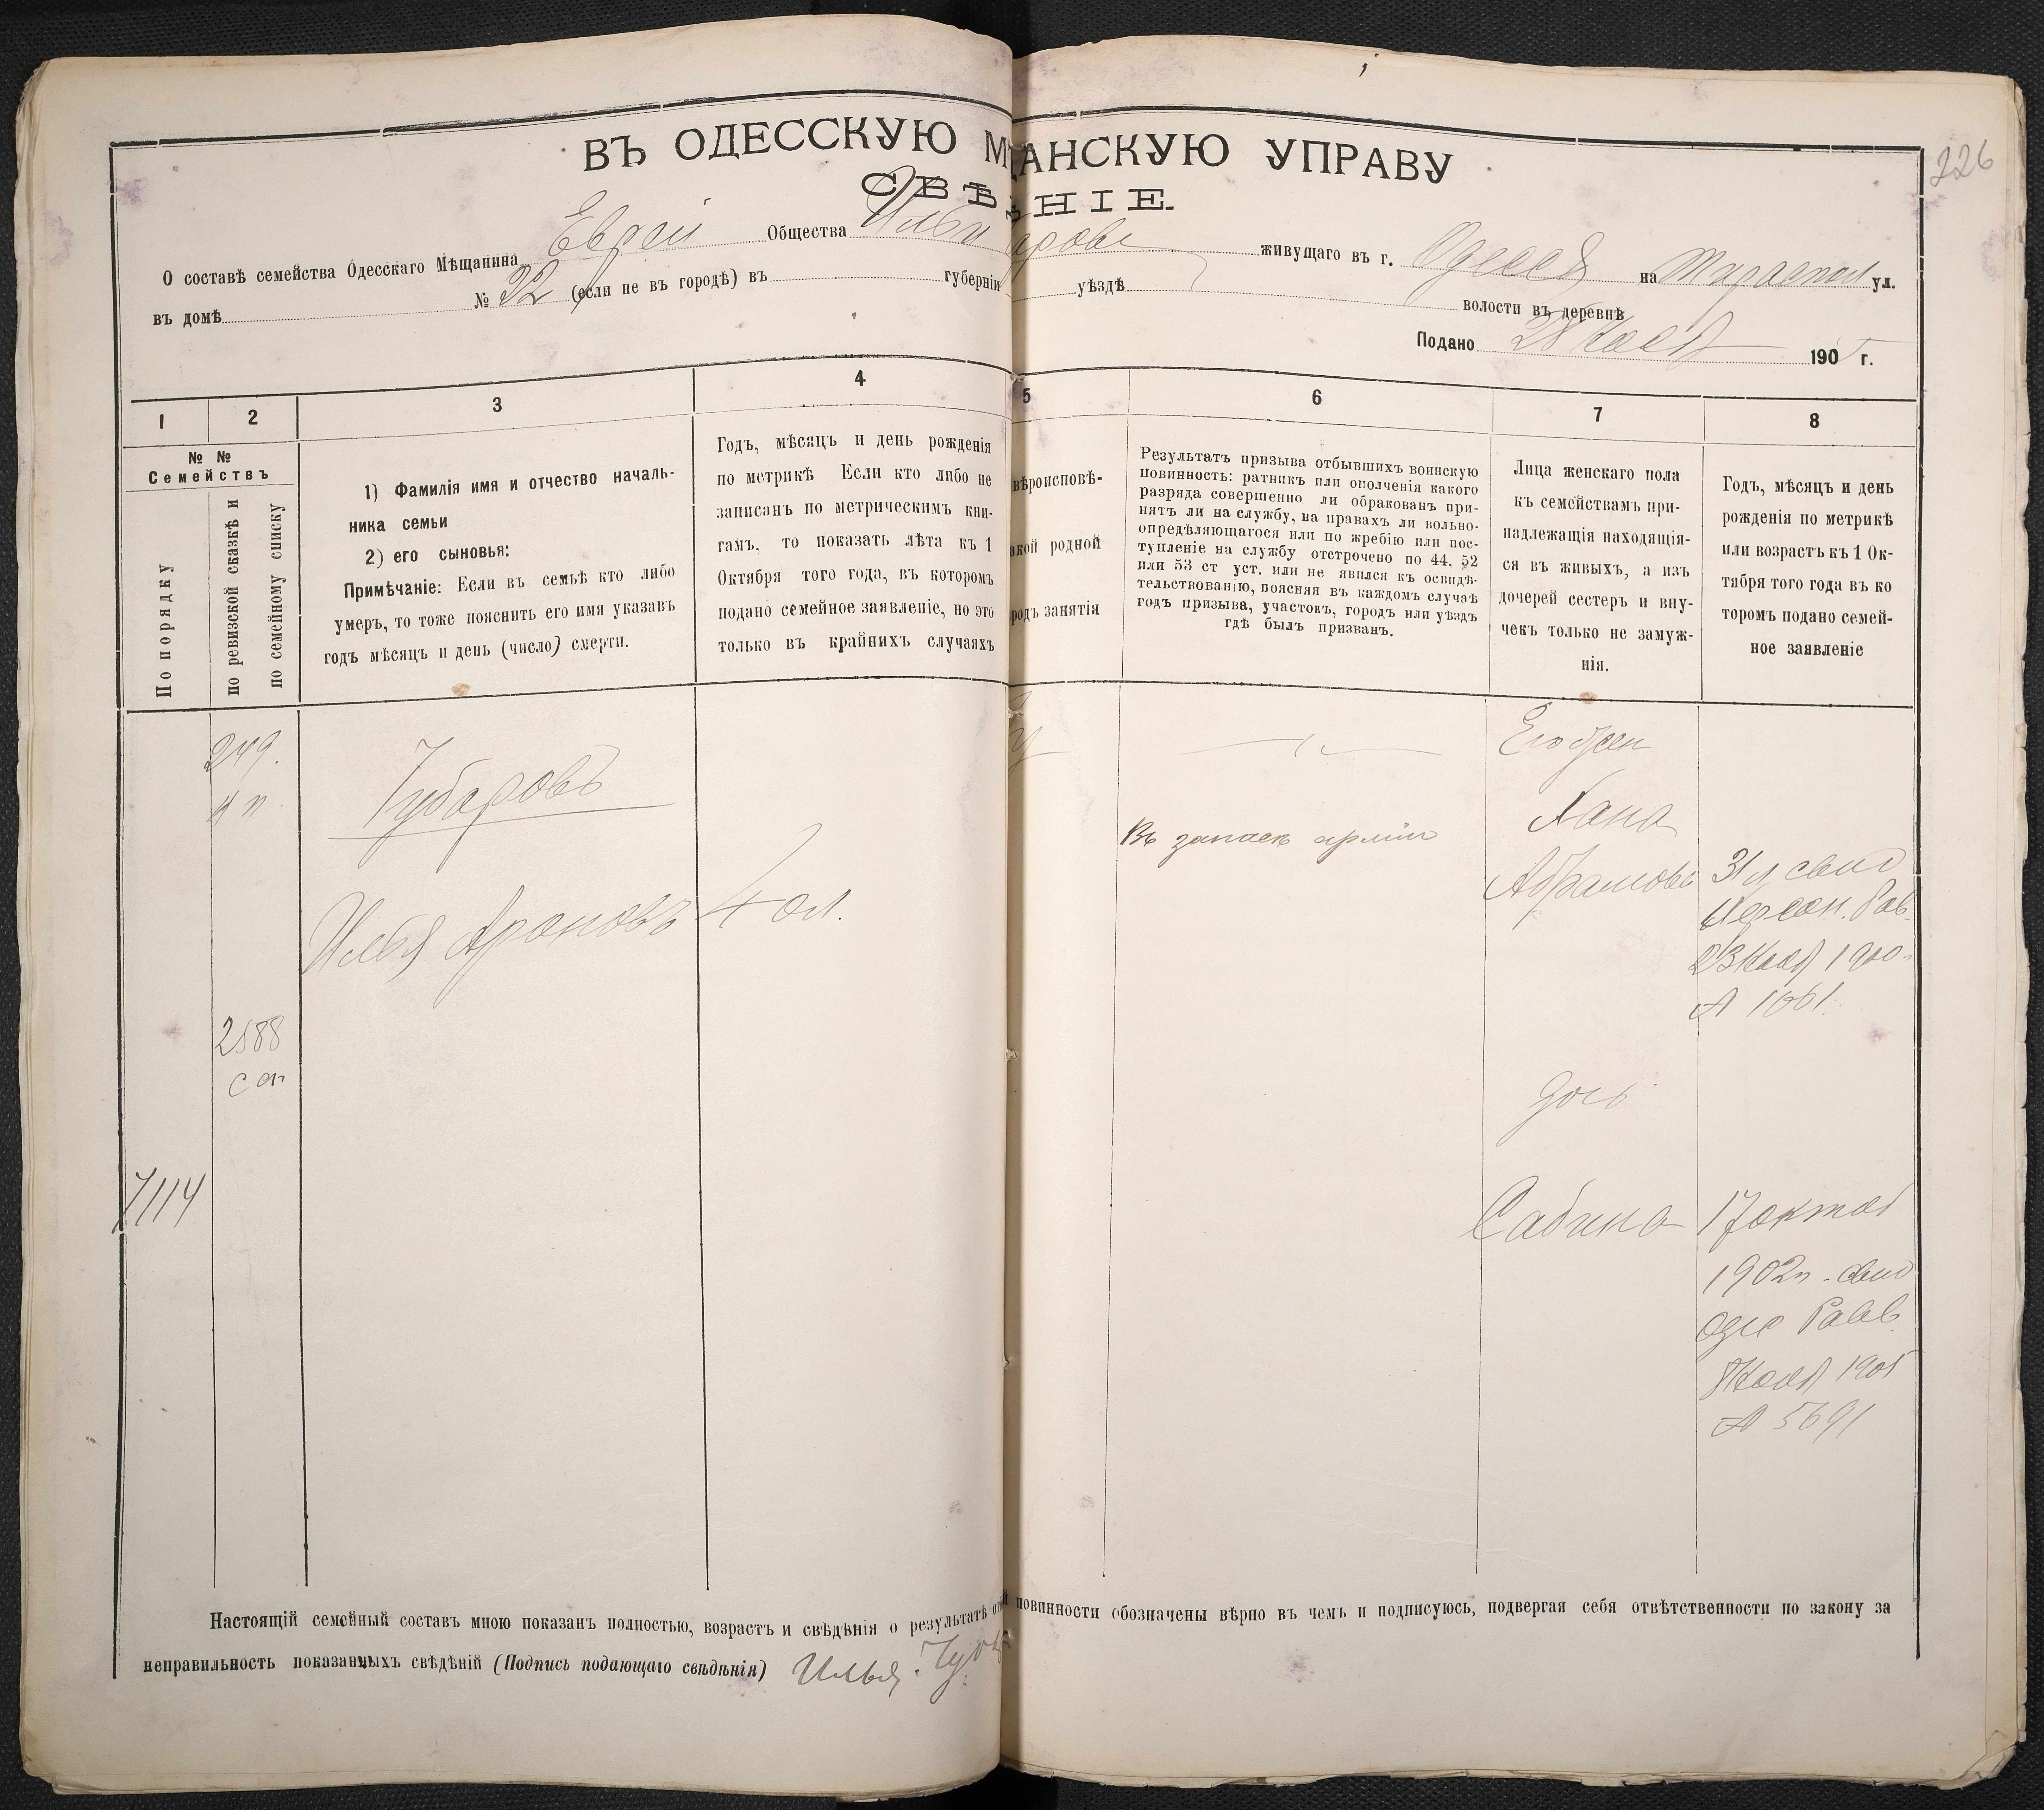 226
ВЪ ОДЕССКУЮ М ЩАНСКУЮ УПРАВУ
СВѢ НІЕ.
О составѣ семейства Одесскаго Мѣщанина Еврей Общества Ильи арова живущаго въ г. Одессѣ на Тираспол ул.
въ домѣ № 32 (если не въ городѣ) въ губерніи уѣздѣ волости въ деревнѣ
Подано 28 190 г.
1 2 3 4 5 6 7 8
№ №
Семействъ
По порядку
по ревизской сказкѣ и
по семейному списку
1) Фамилія имя и отчество началь-
ника семьи
2) его сыновья:
Примѣчаніе: Если въ семьѣ кто либо
умеръ, то тоже пояснить его имя указавъ
годъ мѣсяцъ и день (число) смерти.
Годъ, мѣсяцъ и день рожденія
по метрикѣ Если кто либо не
записанъ по метрическимъ кни-
гамъ, то показать лѣта къ 1
Октября того года, въ которомъ
подано семейное заявленіе, но это
только въ крайнихъ случаяхъ
вѣроисповѣ-
акой родной
родъ занятія
Результатъ призыва отбывшихъ воинскую
повинность: ратникъ или ополченія какого
разряда совершенно ли обракованъ при-
нятъ ли на службу, на правахъ ли вольно-
опредѣляющагося или по жребію или пос-
тупленіе на службу отстрочено по 44, 52
или 53 ст уст. или не явился къ освидѣ-
тельствованію, поясняя въ каждомъ случаѣ
годъ призыва, участокъ, городъ или уѣздъ
гдѣ былъ призванъ.
Лица женскаго пола
къ семействамъ при-
надлежащія находящія-
ся въ живыхъ, а изъ
дочерей сестеръ и вну-
чекъ только не замуж-
нія.
Годъ, мѣсяцъ и день
рожденія по метрикѣ
или возрастъ къ 1 Ок-
тября того года въ ко
торомъ подано семей-
ное заявленіе
249.
Губаровъ
Илья Ароновъ
4 ол.
Въ запасѣ арміи
Его жен
Хана
Абрамова
31 л свид
Херсон. Рав.
23 1900
№ 1061.
2588
дочь
7114
Сабина
17 октяб
1902 г. свид
Одес Равв
1905
№ 5691
Настоящій семейный составъ мною показанъ полностью, возрастъ и свѣдѣнія о результатѣ от повинности обозначены вѣрно въ чемъ и подписуюсь, подвергая себя отвѣтственности по закону за
неправильность показанныхъ свѣдѣній (Подпись подающаго свѣдѣнія) Илья Губ